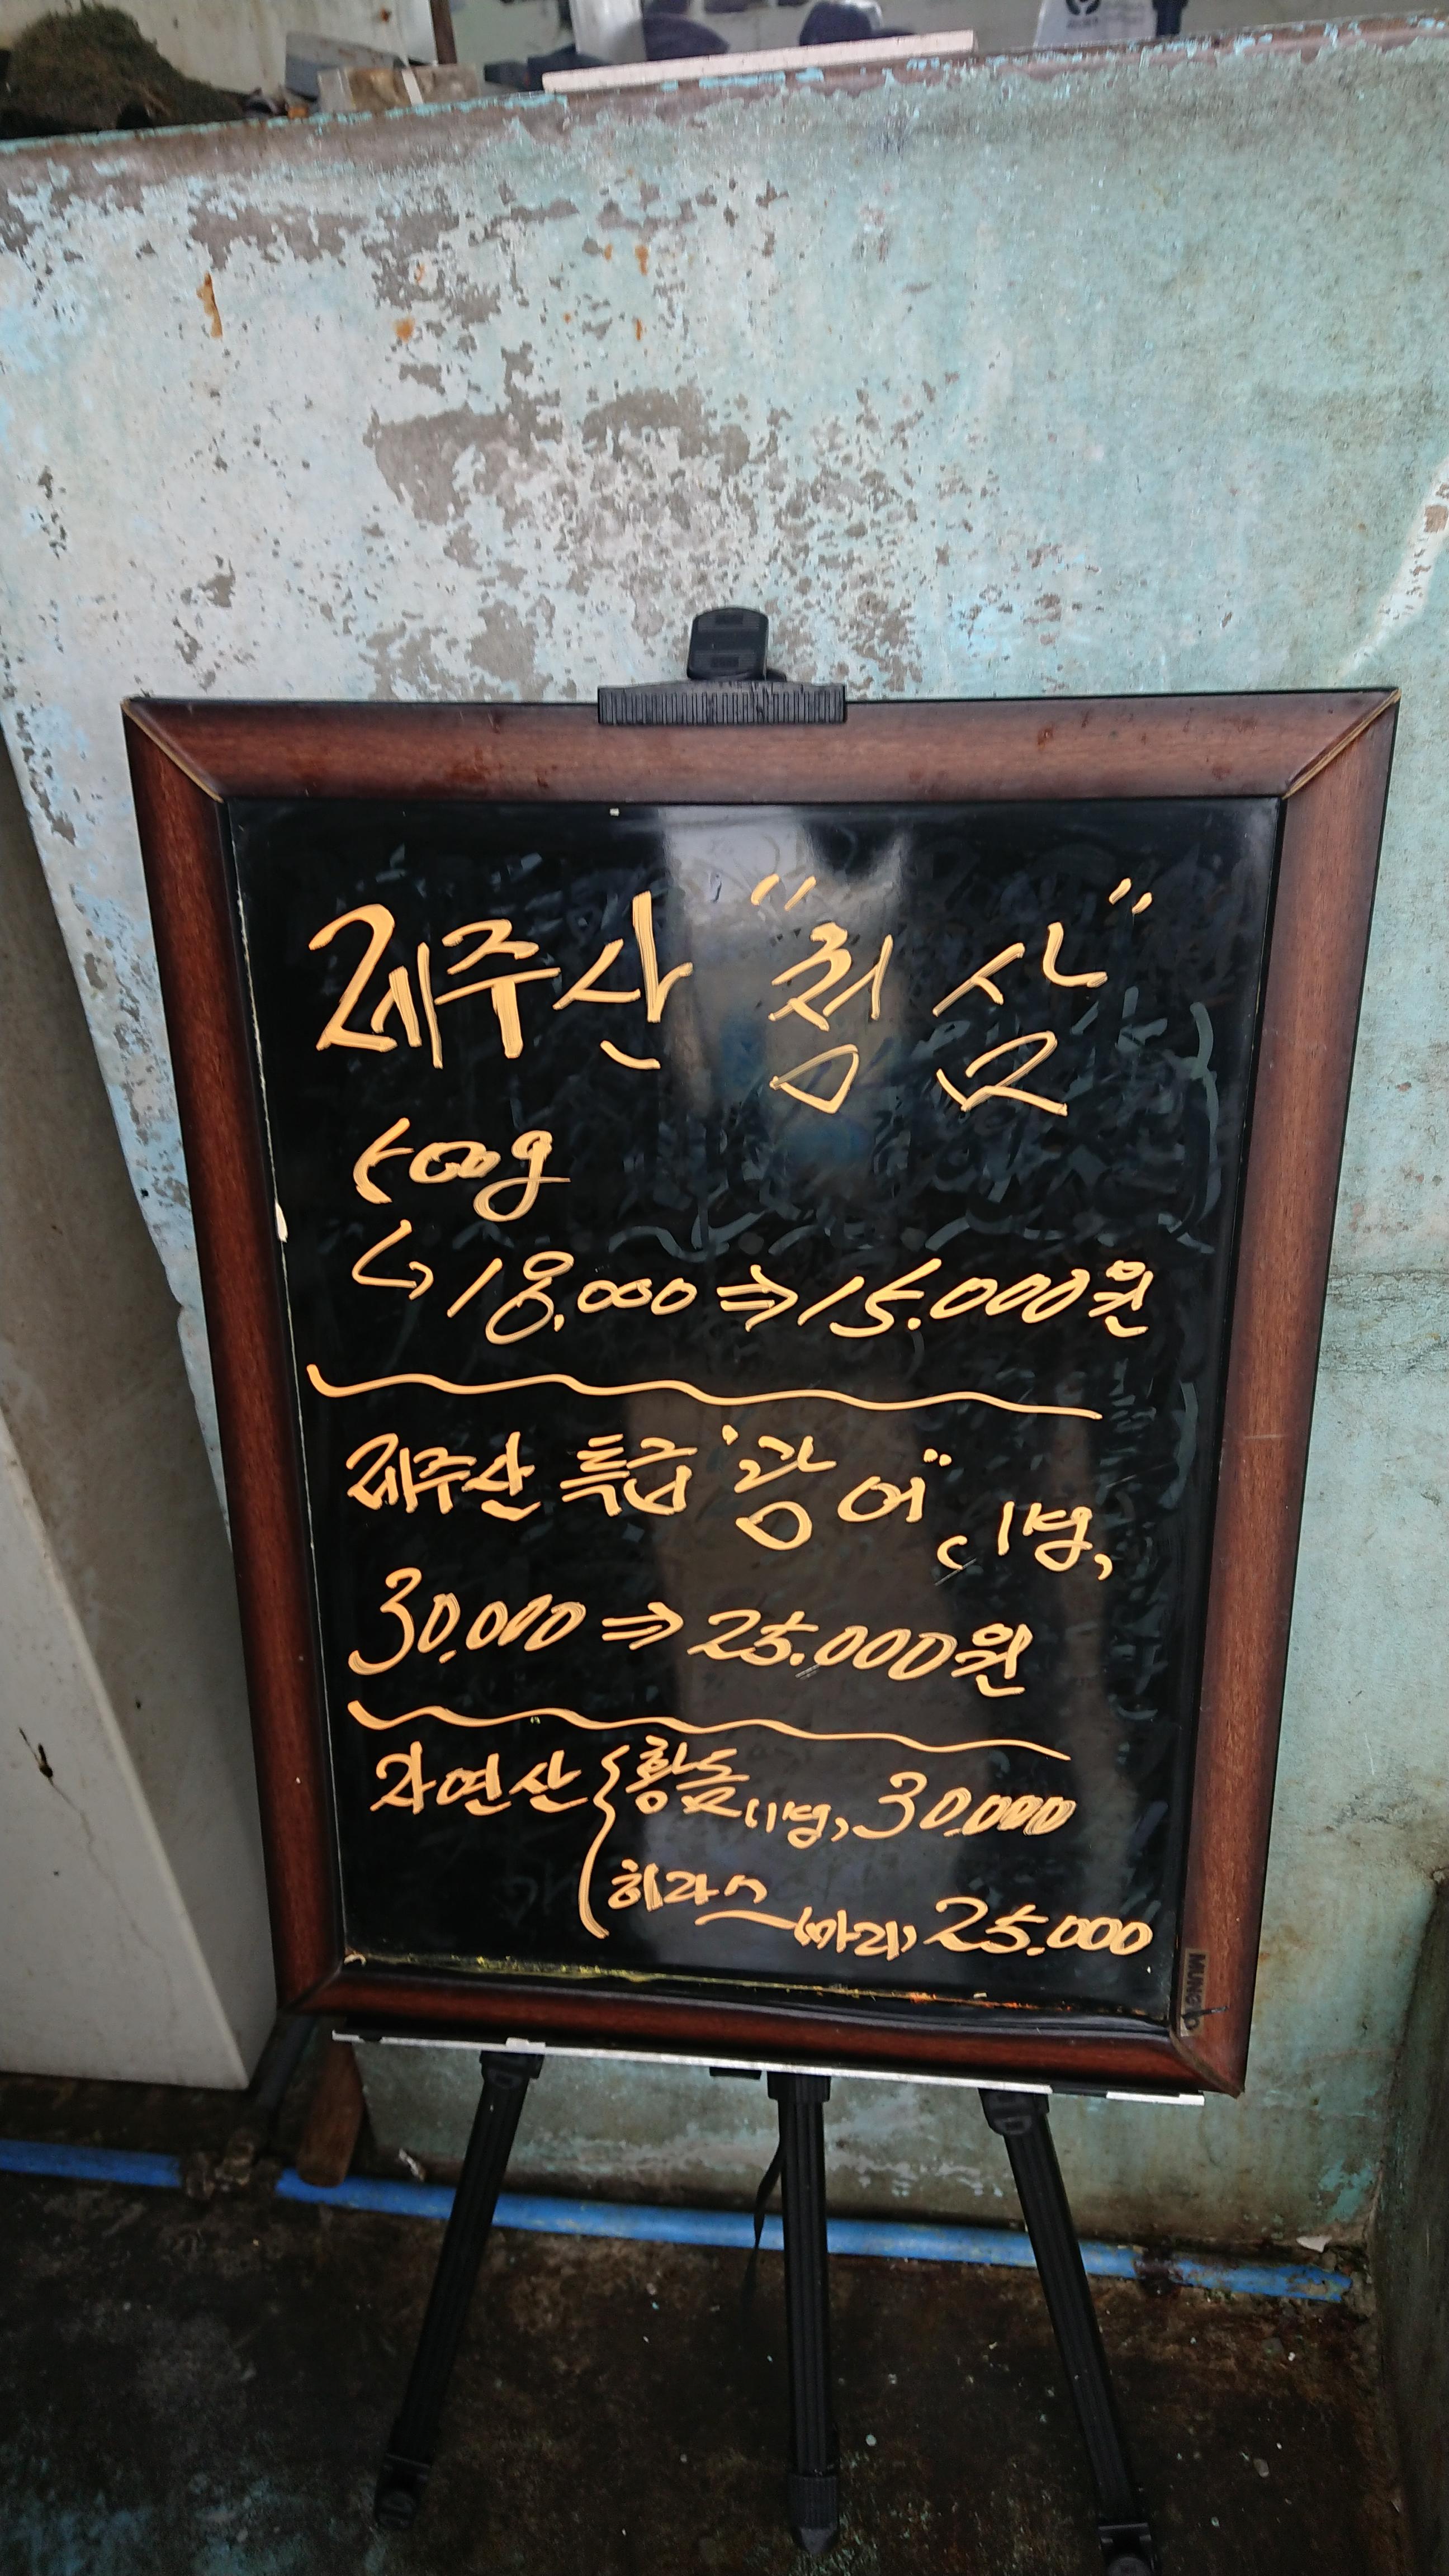 제주산 "청 삼"
500g
↳ 18,000 ⇒ 15.000원
제주산 특급 "광어" (1kg)
30.000 ⇒ 25.000원
자연산 { 황돔 (1kg) 30.000
히라스 (마리) 25.000